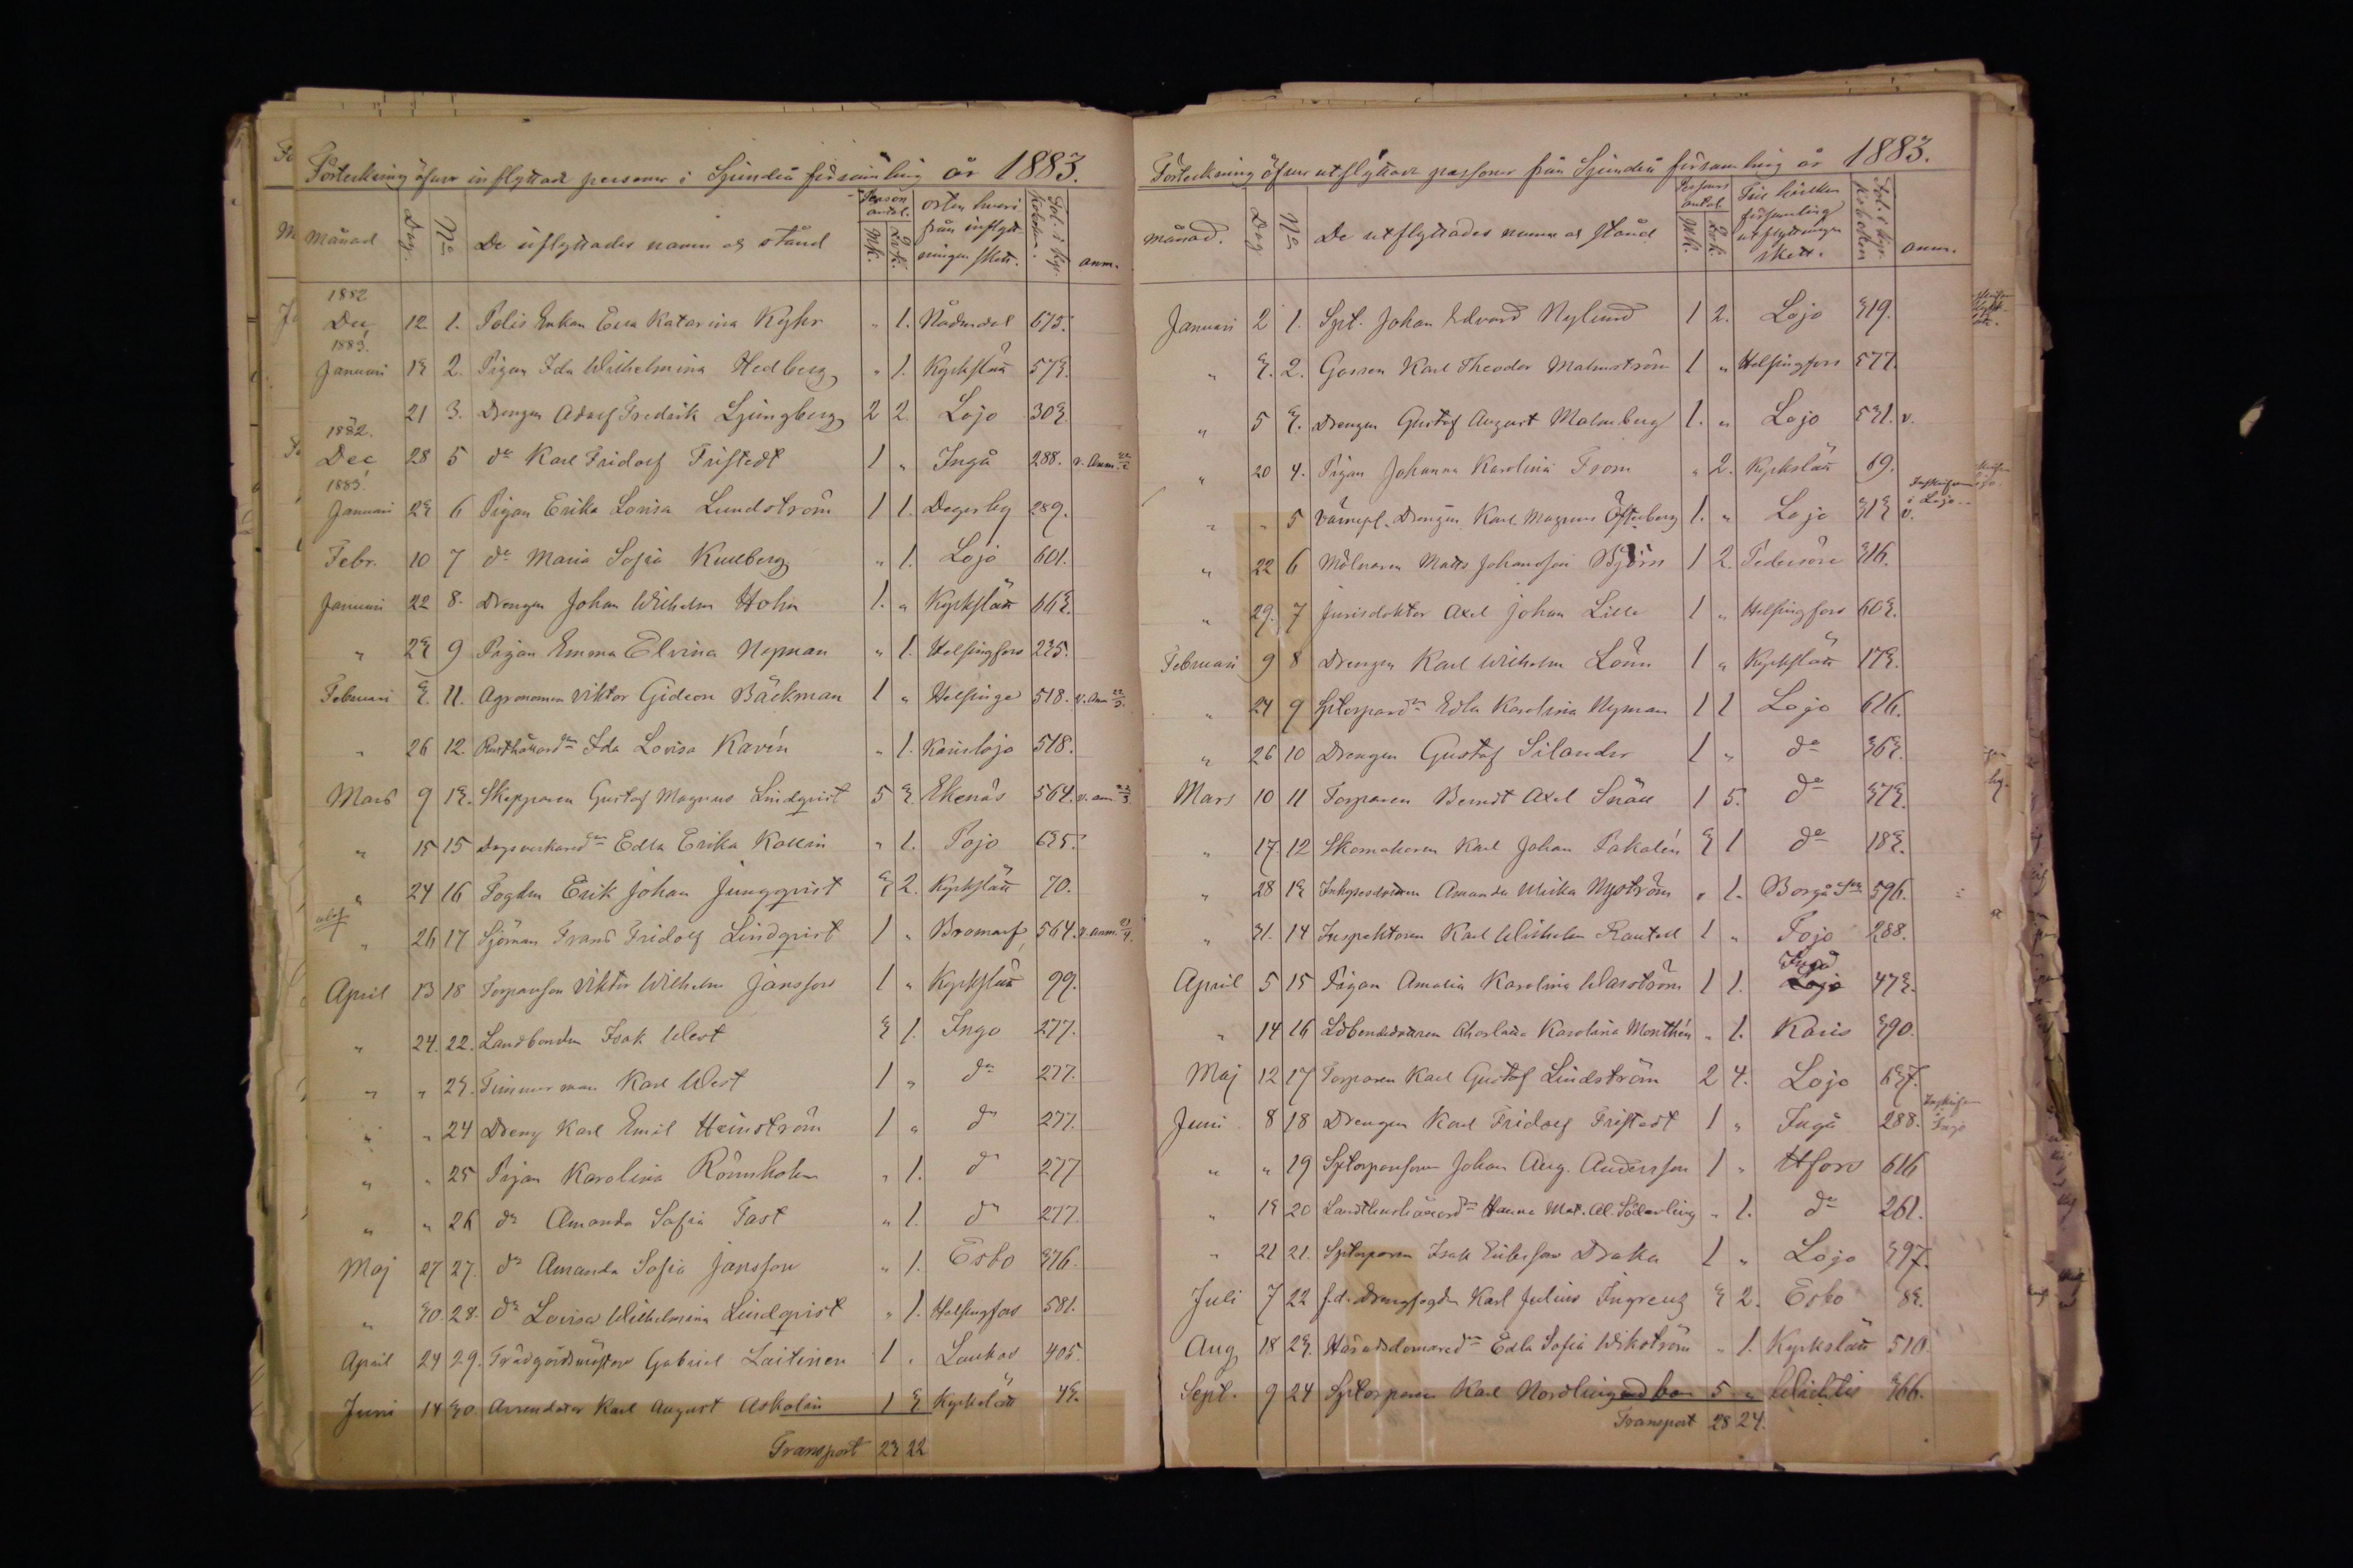 Förteckning öfver inflyttade personer i Sjundeå församling år 1883.
Månad Dag. No De inflyttades namn och stånd Person antal. Mk. Qvk. Orten hvari från inflyttningen skett. Fol. i Kyrkoboken. Anm.
1882
Dec. 12 1. Polis Enkan Eva Katarina " 1. 675.
1883.
Januari 13 2. Pigan Ida Wilhelmina Hedberg " 1. Kyrkslätt 573.
21 3. Drengen Adolf Fredrik Ljungberg 2 2. Lojo 303.
1882.
Dec. 28 5 do Karl Fridolf Fristedt 1 " Ingå 288. v. Anm.
1883.
Januari 23 6 Pigan Erika Lovisa Lundström 1 1. Degerby 289.
Febr. 10 7 do Maria Sofia Kullberg " 1. Lojo 601.
Januari 22 8. Drengen Johan Wilhelm Holm 1. " Kyrkslätt 663.
" 23 9 Pigan Emma Elvina Nyman " 1. Helsingfors 235.
Februari 3. 11. Agronomen Viktor Gideon Bäckman 1 " Helsinge 518. v. Anm.
" 26 12. Ida Lovisa Kavén " 1. Karislojo 518.
Mars 9 13. Skepparen Gustaf Magnus Lindqvist 5 3. Ekenäs 564. v. anm.
" 15 15 Edla Erika Kollin " 1. Pojo 635.
" 24 16 Fogden Erik Johan Jungqvist 3 2. Kyrkslätt 70.
" 26 17 Sjöman Frans Fridolf Lindqvist 1 " Bromarf 564. v. anm.
April 13 18 Torparson Viktor Wilhelm Jansson 1 " Kyrkslätt 99.
" 24. 22. Landbonden Isak West 3 1. Ingo 277.
" " 23. Timmerman Karl West 1 " do 277.
" " 24 Dreng Karl Emil Heinström 1 " do 277.
" " 25 Pigan Karolina Rönnholm " 1. do 277
" " 26 do Amanda Sofia Fast " 1. do 277.
Maj 27 27. do Amanda Sofia Jansson " 1. Esbo 376.
" 30. 28. do Lovisa Wilhelmina Lindqvist " 1. Helsingfors 581.
April 24 29. Trädgårdsmästare Gabriel Laitinen 1 " Laukas 405.
Juni 14 30. Arrendator Karl August Askolin 1 3 Kyrkslätt 43.
Transport 23 22
Förteckning öfver utflyttade personer från Sjundeå församling år 1883.
Månad. Dag No De utflyttades namn och stånd Persons antal Mk. Qvk. Till hvilken församling utflyttningen skett. Fol. i Kyrkoboken Anm.
Januari 2 1. Spt. Johan Edvard Nylund 1 2. Lojo 319.
" 3. 2. Gossen Karl Theodor Malmström 1 " Helsingfors 577.
" 5 3. Drengen Gustaf August Malmberg 1. " Lojo 531. v.
" 20 4. Pigan Johanna Karolina From " 2. Kyrkslätt 69.
" " 5 Värnepl. Drengen Karl Magnus Österberg 1. " Lojo 313 v. i Lojo.
" 22 6 Mölnaren Matts Johansson Björn 1 2. Pedersöre 316.
" 29. 7 Jurisdoktor Axel Johan Lille 1 " Helsingfors 603.
Februari 9 8 Drengen Karl Wilhelm Lönn 1 " Kyrkslätt 173.
" 24 9 Edla Karolina Nyman 1 1 Lojo 616.
" 26 10 Drengen Gustaf Silander 1 " do 363.
Mars 10 11 Torparen Berndt Axel Snäll 1 5. do 373.
" 17. 12 Skomakaren Karl Johan Pakalén 3 1 do 183.
" 28 13 Amanda Ulrika Nyström " 1. Borgå 596.
" 31. 14 Inspektoren Karl Wilhelm Rantell 1 " Pojo 288.
Ingå
April 5 15 Pigan Amalia Karolina Wasström 1 1. Lojo 473.
" 14 16 Karolina Monthén " 1. Karis 390.
Maj 12 17 Torparen Karl Gustaf Lindström 2 4. Lojo 637.
Juni 8 18 Drengen Karl Fridolf Fristedt 1 " Ingå 288.
" " 19 Sptorparson Johan Aug. Andersson 1 " Hfors 616
" 13 20 Hanna Mat. Al. Söderling " 1. do 261.
" 21 21. Sptorparen Isak Eriksson Draka 1 " Lojo 397.
Juli 7 22 f.d. Drengfogden Karl Julius Ingrenz 3 2. Esbo 83.
Aug 18 23. Edla Sofia Wikström " 1. Kyrkslätt 510.
Sept. 9 24 Sptorparen Karl Nordling 5 " Wichtis 366.
Transport 28 24.